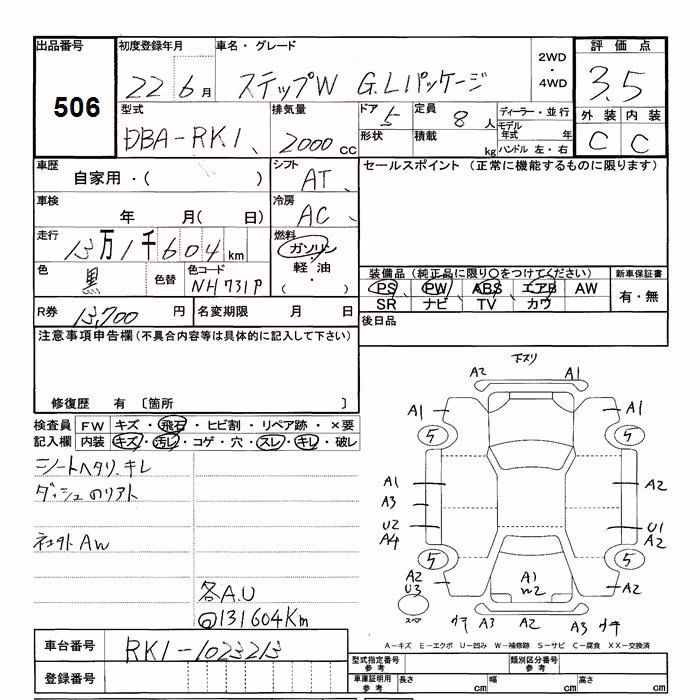 出品番号 初度登録年月 車名・グレード 2WD・4WD 評価点
506 22 6月 ステップW G.Lパッケージ 3.5
型式 排気量 ドア 5 定員 8人 ディーラー・並行 外装 内装
DBA-RK1 2000cc 形状 積載 kg モデル年式 年 C C
ハンドル 左・右
車歴 シフト セールスポイント (正常に機能するものに限ります)
自家用・( ) AT
車検 冷房
年 月( 日) AC
走行 燃料
13万1千604km ガソリン・軽油・( )
色 黒 色替 色コード NH731P
装備品(純正品に限り○をつけてください) 新車保証書
PS PW ABS エアB AW 有・無
SR ナビ TV カワ
R券 13,700円 名変期限 月 日 後日品
注意事項申告欄(不具合内容等は具体的に記入して下さい)
修復歴 有 〔箇所 〕
検査員記入欄 FW キズ・飛石・ヒビ割・リペア跡・×要
内装 キズ・汚レ・コゲ・穴・スレ・キレ・破レ
シートヘタリ.キレ
社外AW
各A.U
131604Km
下スリ
A2 A1
A1 A1
5 5
A1 A2
A3
U2 U1
A4 A2
5 5
A2 A1 A2
U3 W2
A3 A2 A3
A-キズ E-エクボ U-凹み W-補修跡 S-サビ C-腐食 XX-交換済
車台番号 RK1-1023213
登録番号
型式指定番号参考 類別区分番号参考
車庫証明用参考 長さ cm 幅 cm 高さ cm